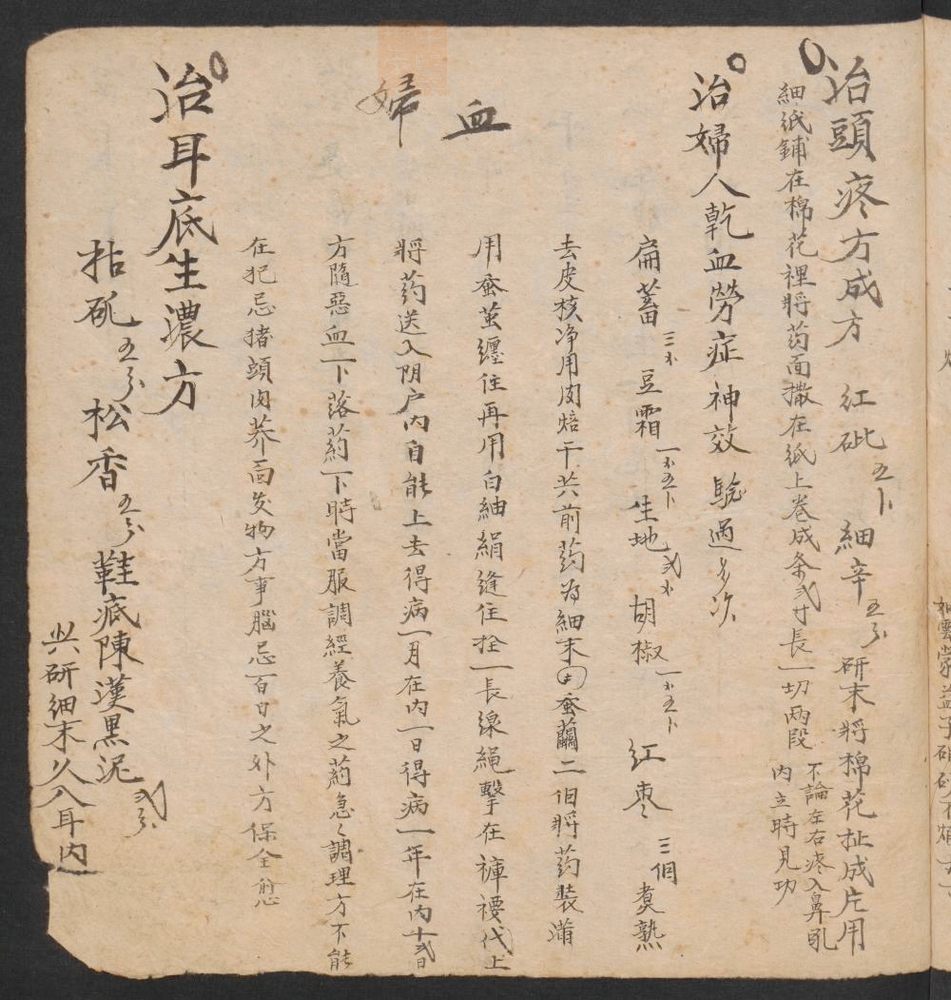 治頭疼方成方 紅砒五卜 細辛五分 研末將棉花扯成片用
細紙鋪在棉花裡將药面撒在紙上卷成条弍寸長一切兩段 不論左右疼入鼻孔
內立時見功
治婦人乾血勞症神效 驗過多次
扁蓄三个 豆霜一个五卜 生地弍个 胡椒一个五卜 紅枣三個煑熟
去皮核净用肉焙干共前药为細末 蚕繭二個將药装滿
用蚕茧纏住再用白紬絹缝住拴一長線繩擊在褲褄代上
將药送入阴户內自能上去得病一月在內一日得病一年在內十弍日
方隨惡血一下落葯一下時當服調經養氣之葯急〻調理方不能
在犯忌猪頭肉荞面发物方事腦忌百日之外方保全愈
血
婦
治耳底生濃方
拈矾五分 松香五分 鞋底陳漢黑泥弍分
共研細末久入耳內